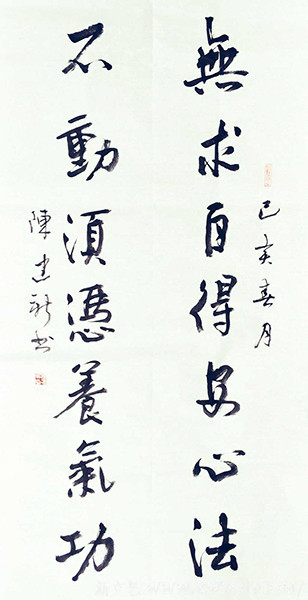 己亥春月
無求自得安心法
不動須憑養氣功
陳建新书